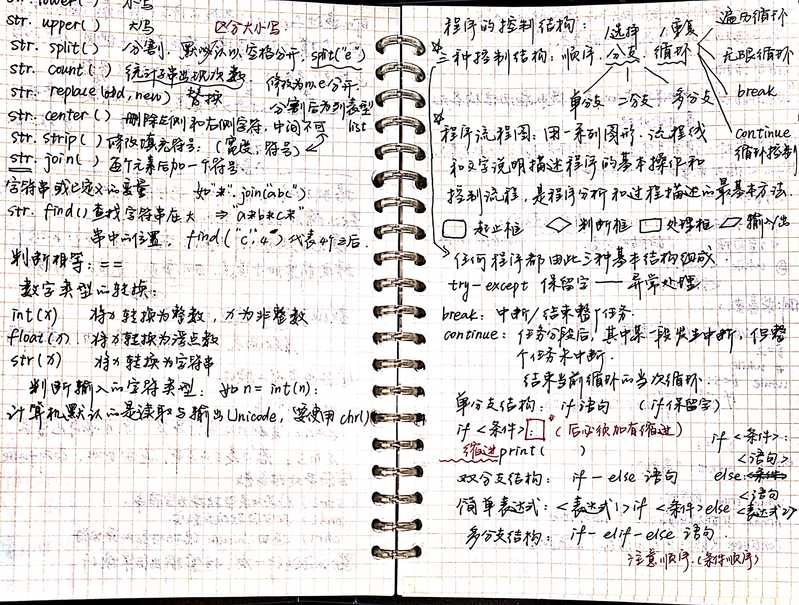 str. lower( ) 小写
str. upper( ) 大写 区分大小写
str. split( ) 分割，默认以空格分开，split("e")
str. count( ) 统计子串出现次数 修改为以e分开
str. replace(old, new) 替换 分割后为列表型 list
str. center( ) 删除左侧和右侧字符，中间不可
str. strip( ) 修改填充符号：(宽度，符号)
str. join( ) 逐个元素后加一个符号
字符串或已定义的变量 如"*".join(abc)
str. find( ) 查找字符串在大 ⇒ "a*b*c*"
串中的位置， find("c",4) 代表4个之后.
判断相等：==
数字类型的转换：
int(x) 将x转换为整数，x为非整数
float(x) 将x转换为浮点数
str(x) 将x转换为字符串
判断输入的字符类型：如 n = int(n):
计算机默认的是读取与输出Unicode，要使用chr(
程序的控制结构： 选择 重复 遍历循环
*三种控制结构：顺序，分支，循环 无限循环
单分支 二分支 多分支 break
continue
循环控制
*程序流程图：用一系列图形、流程线
和文字说明描述程序的基本操作和
控制流程，是程序分析和过程描述的最基本方法
起止框 判断框 处理框 输入/出
任何程序都由此三种基本结构组成
try-except 保留字 —— 异常处理
break：中断/结束整个任务.
continue：任务分段后，其中某一段发生中断，但整
个任务未中断.
结束当前循环的当次循环.
单分支结构： if 语句 (if保留字)
if <条件> : (后必须加有缩进)
缩进print( )
if <条件>:
<语句>
else: <条件>
<语句>
双分支结构： if - else 语句
简单表达式：<表达式1> if <条件> else <表达式2>
多分支结构： if - elif - else 语句.
注意顺序.(条件顺序)